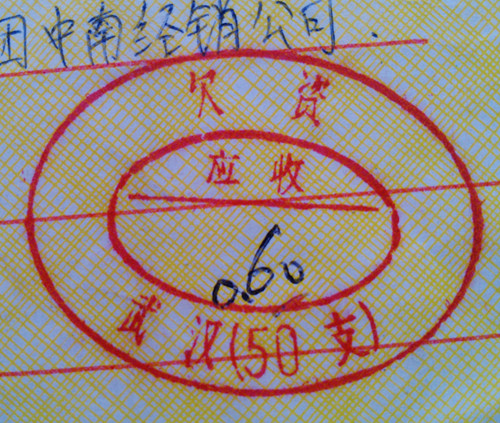 团中南经销公司.
欠资
应收
0.60
武汉(50支)